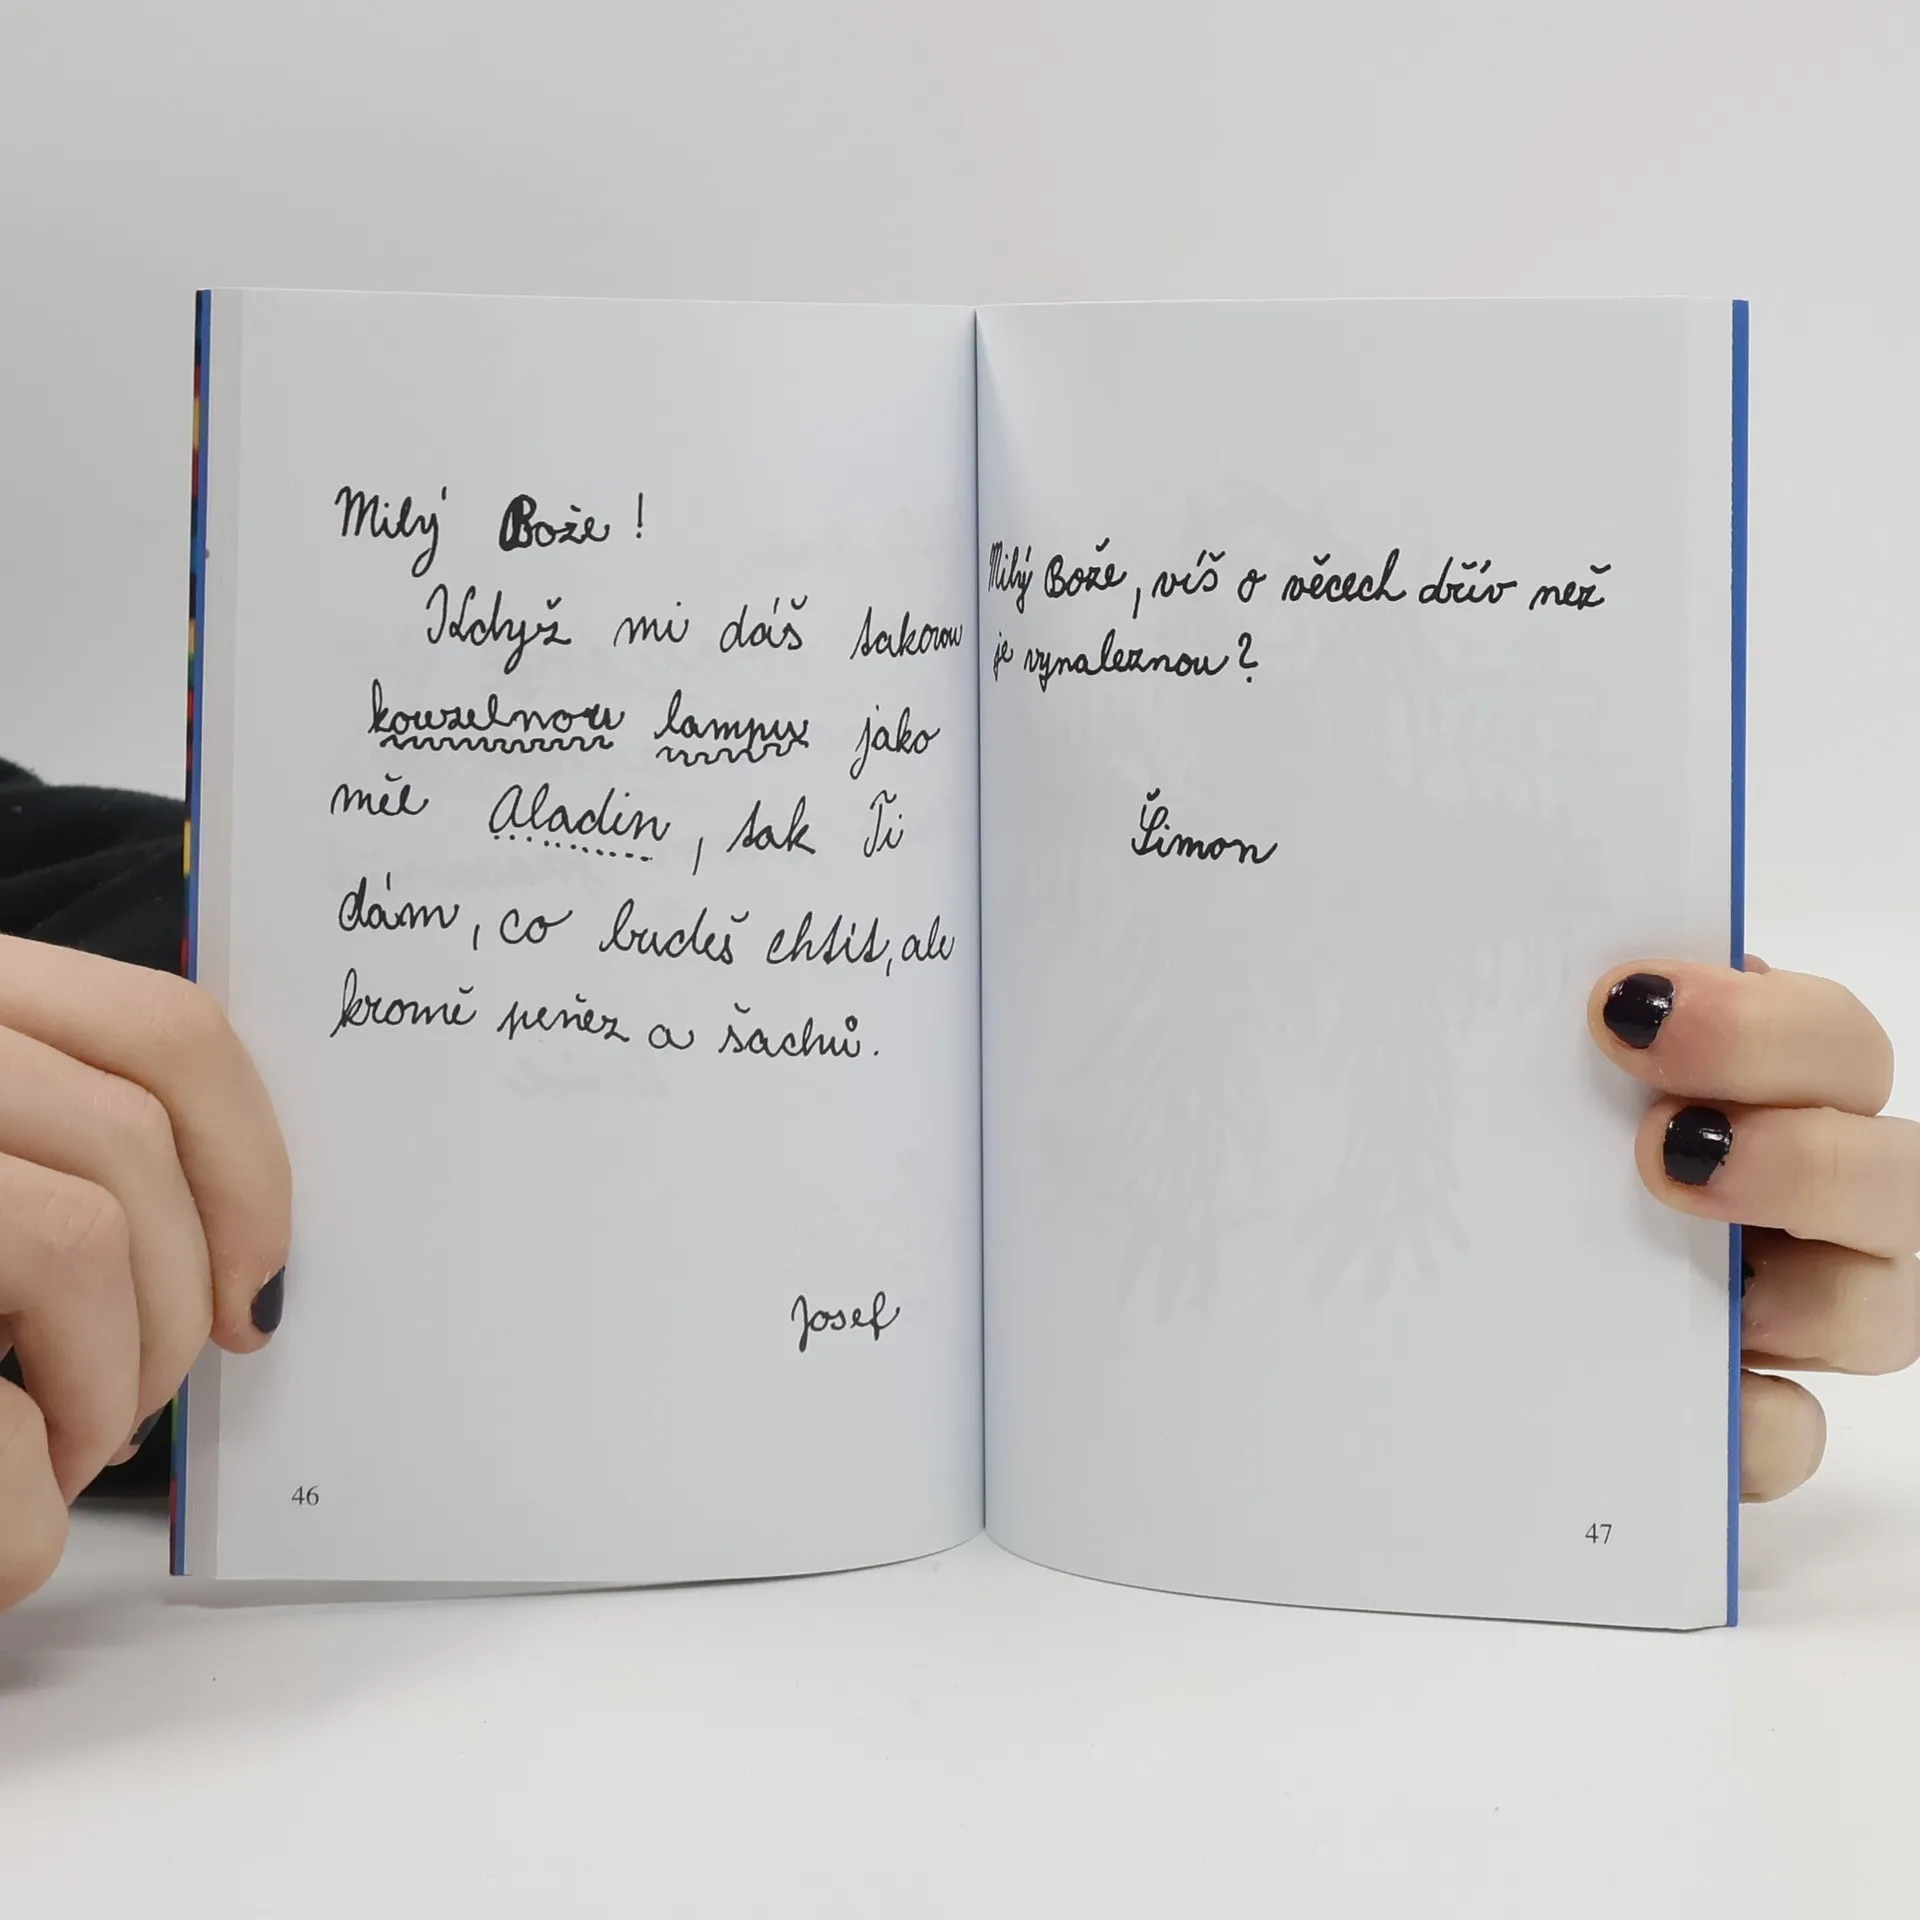 Milý Bože!
Když mi dáš takovou
kouzelnou lampu jako
měl Aladin, tak Ti
dám, co budeš chtít, ale
kromě peněz a šachů.
Josef
46
Milý Bože, víš o věcech dřív než
je vynaleznou?
Šimon
47